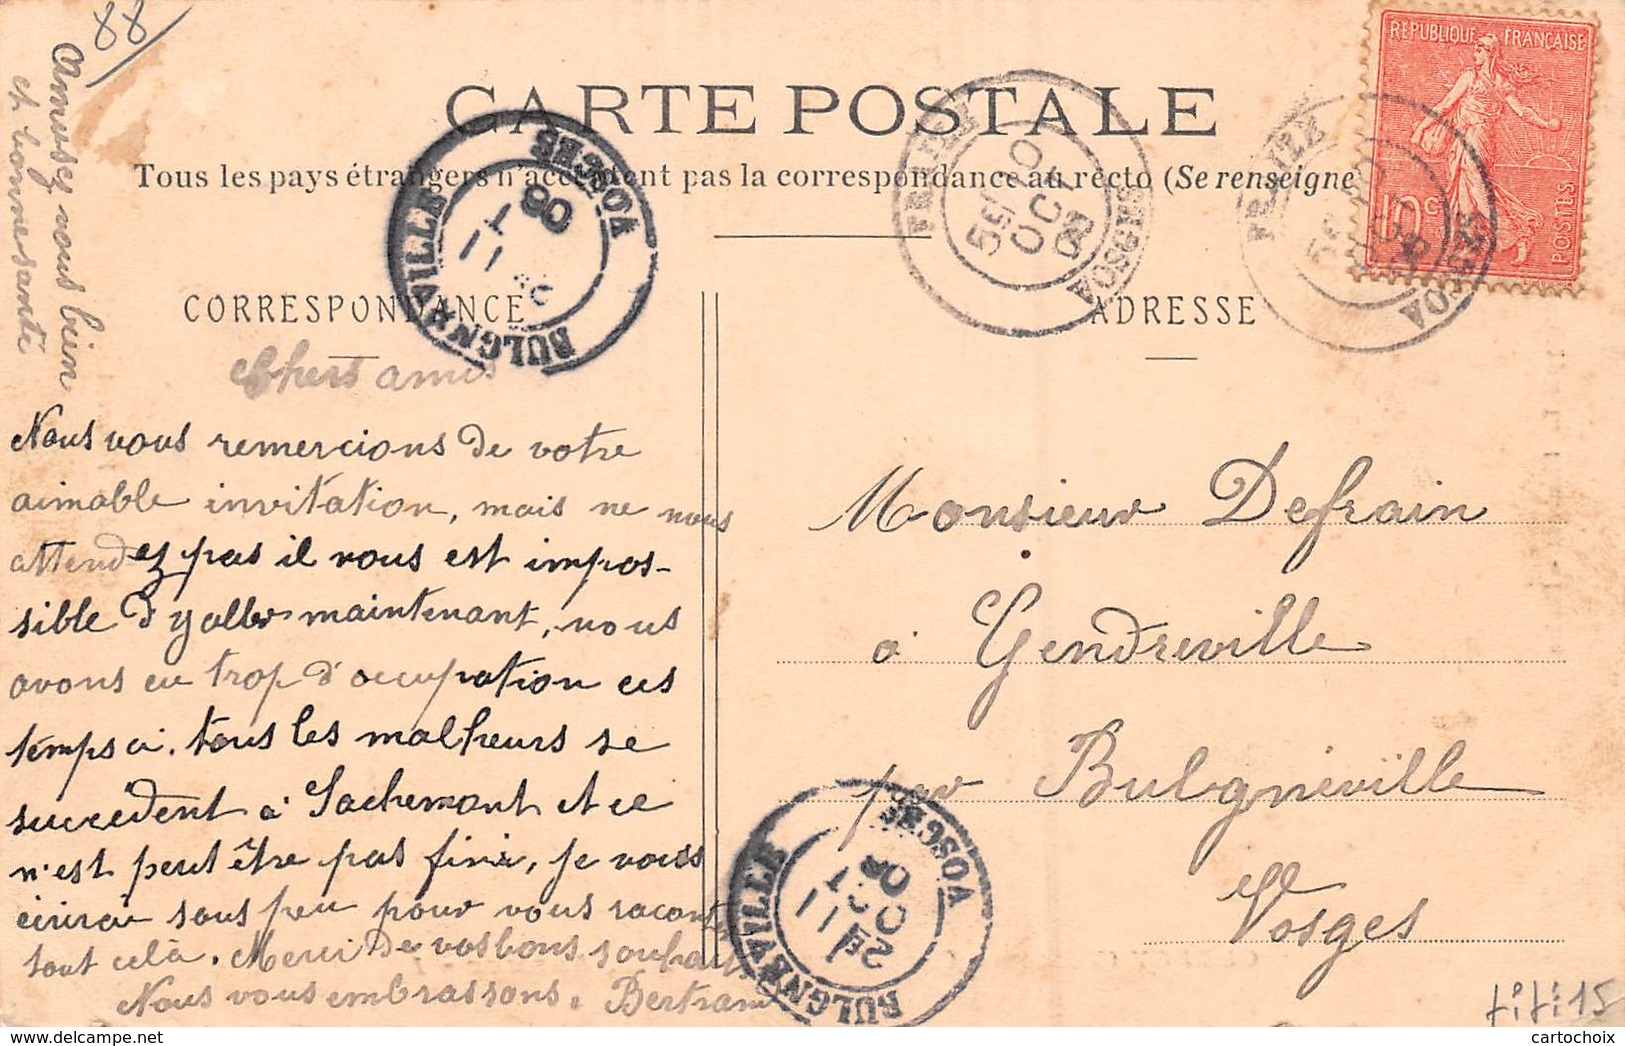 88
Amusez vous bien
et bonne santé
CARTE POSTALE
Tous les pays étrangers n'acceptent pas la correspondance au recto (Se renseigne
RÉPUBLIQUE FRANÇAISE
10 c
POSTES
BULGNÉVILLE
VOSGES
11
06
VOSGES
10
OCT
VOSGES
CORRESPONDANCE
ADRESSE
Chers amis
Nous vous remercions de votre
aimable invitation, mais ne nous
attendez pas il vous est impos-
sible d'y aller maintenant, nous
avons eu trop d'occupation ces
temps ci. tous les malheurs se
succedent à Sachemont et ce
n'est peut être pas fini, je vous
écrirai sous peu pour vous racont
tout celà. Merci de vos bons souhaits
Nous vous embrassons. Bertrand
Monsieur Defrain
à Gendreville
par Bulgnéville
Vosges
BULGNÉVILLE
VOSGES
11
OCT
titi15
cartochoix